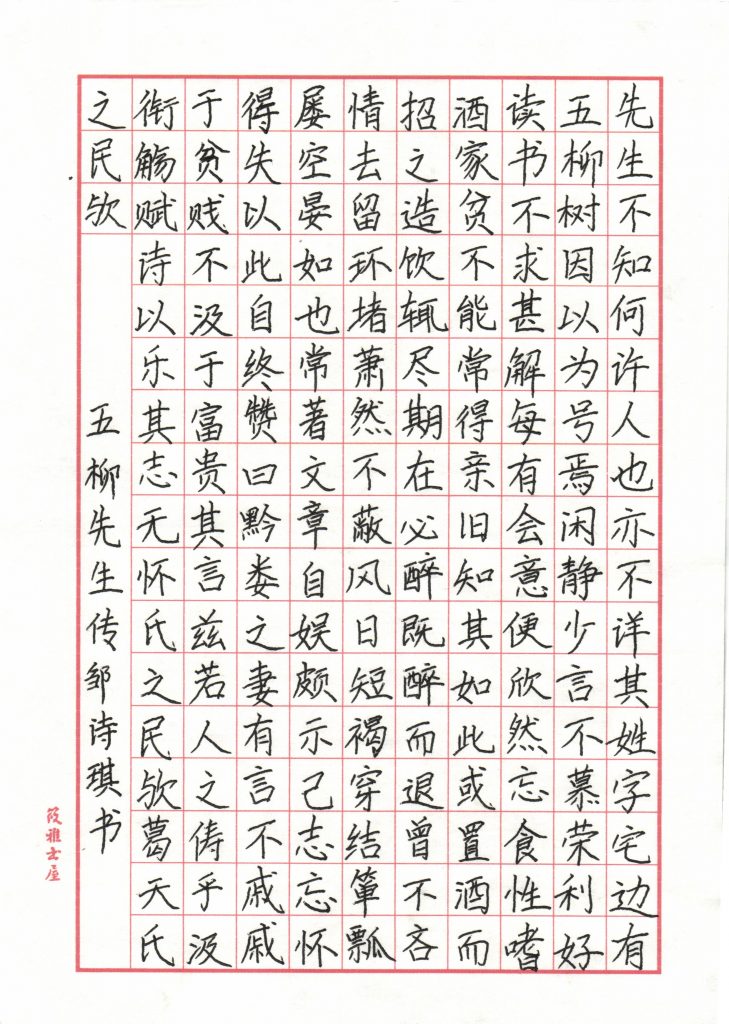 先生不知何许人也亦不详其姓字宅边有
五柳树因以为号焉闲静少言不慕荣利好
读书不求甚解每有会意便欣然忘食性嗜
酒家贫不能常得亲旧知其如此或置酒而
招之造饮辄尽期在必醉既醉而退曾不吝
情去留环堵萧然不蔽风日短褐穿结箪瓢
屡空晏如也常著文章自娱颇示己志忘怀
得失以此自终赞曰黔娄之妻有言不戚戚
于贫贱不汲于富贵其言兹若人之俦乎汲
衔觞赋诗以乐其志无怀氏之民欤葛天氏
之民欤
五柳先生传邹诗琪书
雅士屋